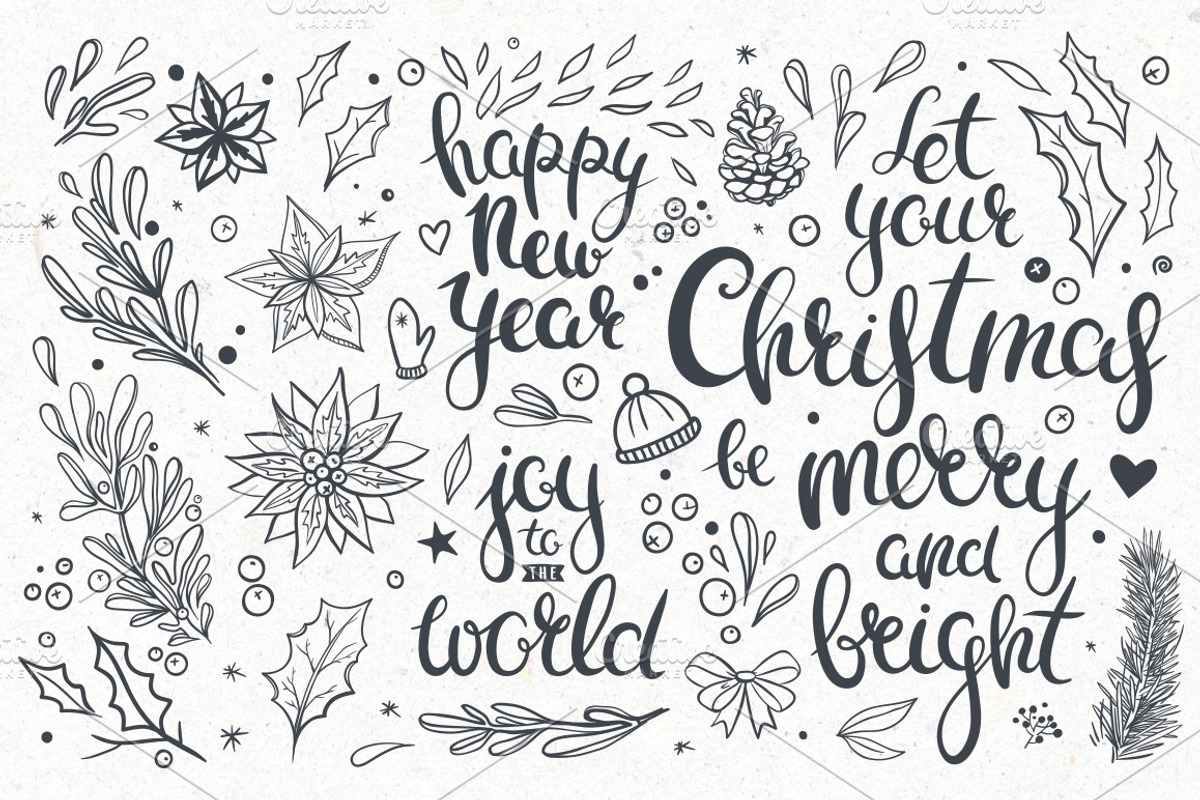 happy
New
year
joy
to
THE
world
Let
your
Christmas
be
merry
and
bright
Creative
MARKET
Creative
MARKET
Creative
MARKET